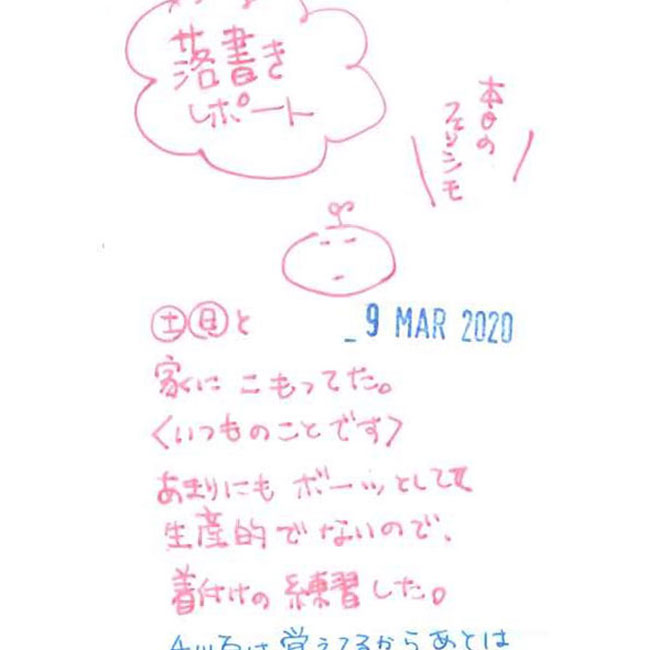 落書き
レポート
本日の
フェリシモ
土日と
9 MAR 2020
家にこもってた。
〈いつものことです〉
あまりにもボーッとしてて
生産的でないので、
着付けの練習した。
覚えてるからあとは